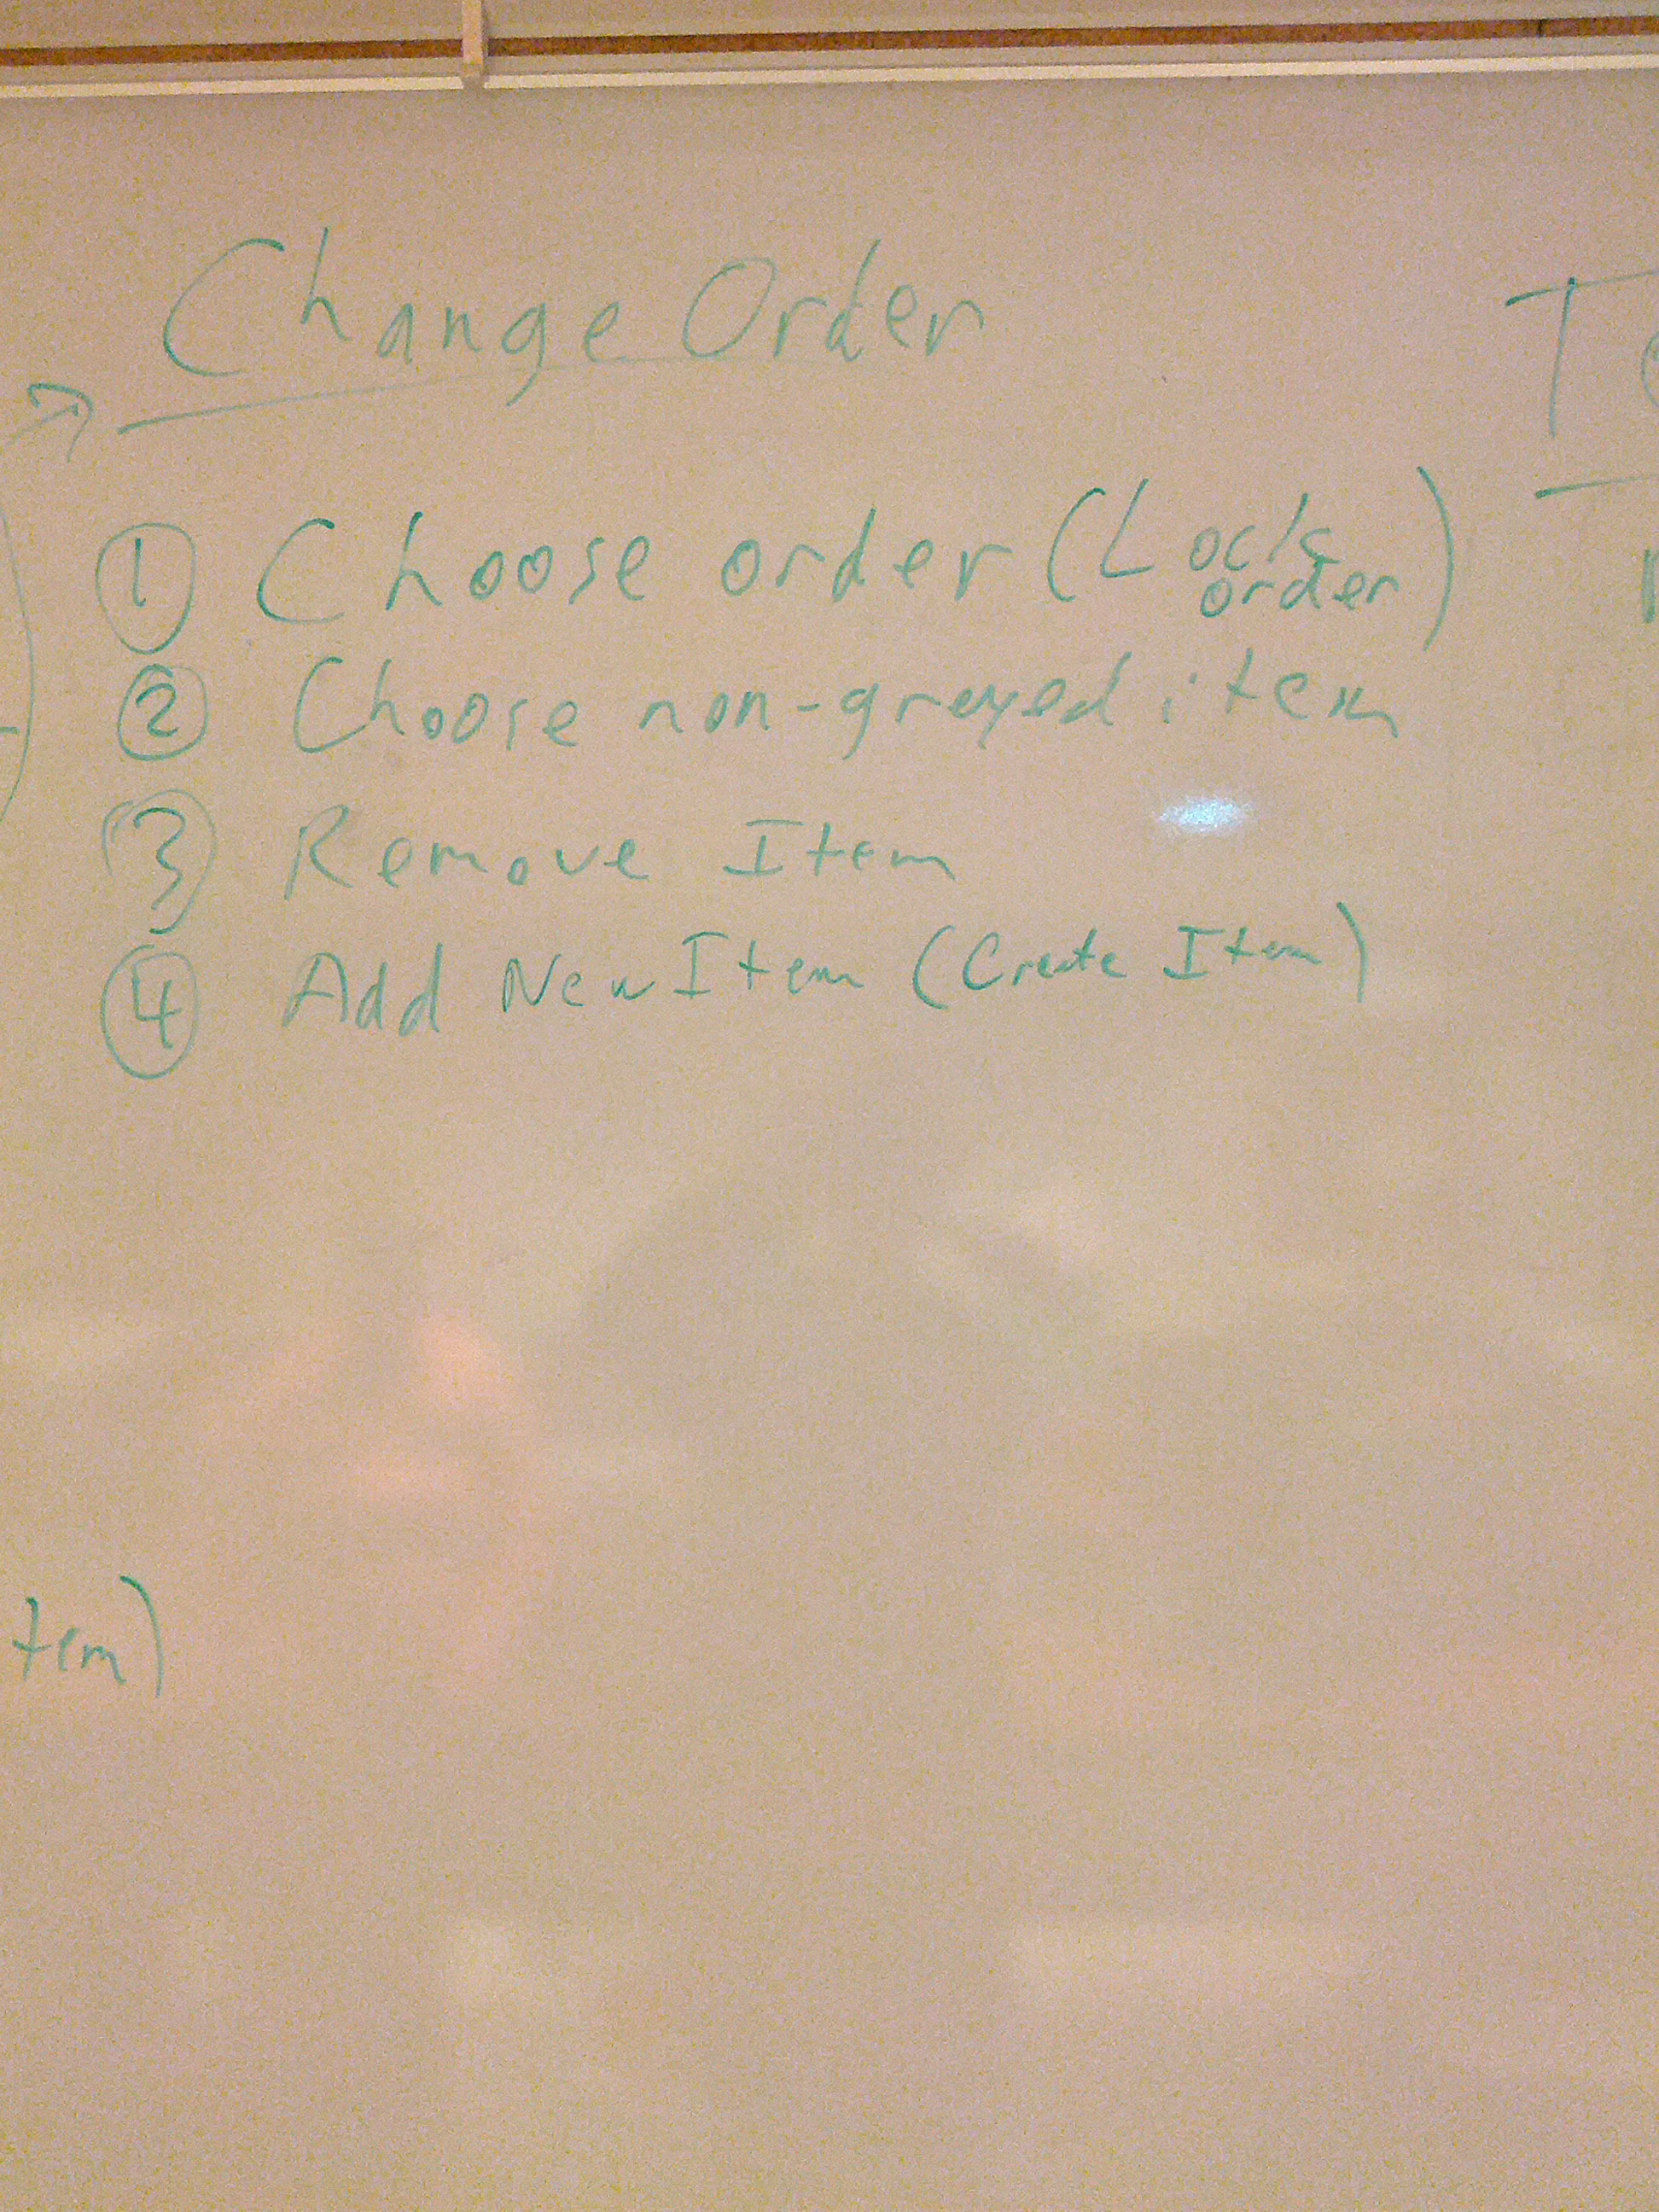 Change Order
① Choose order (Lock order)
② Choose non-greyed item
③ Remove Item
④ Add New Item (Create Item)
tem)